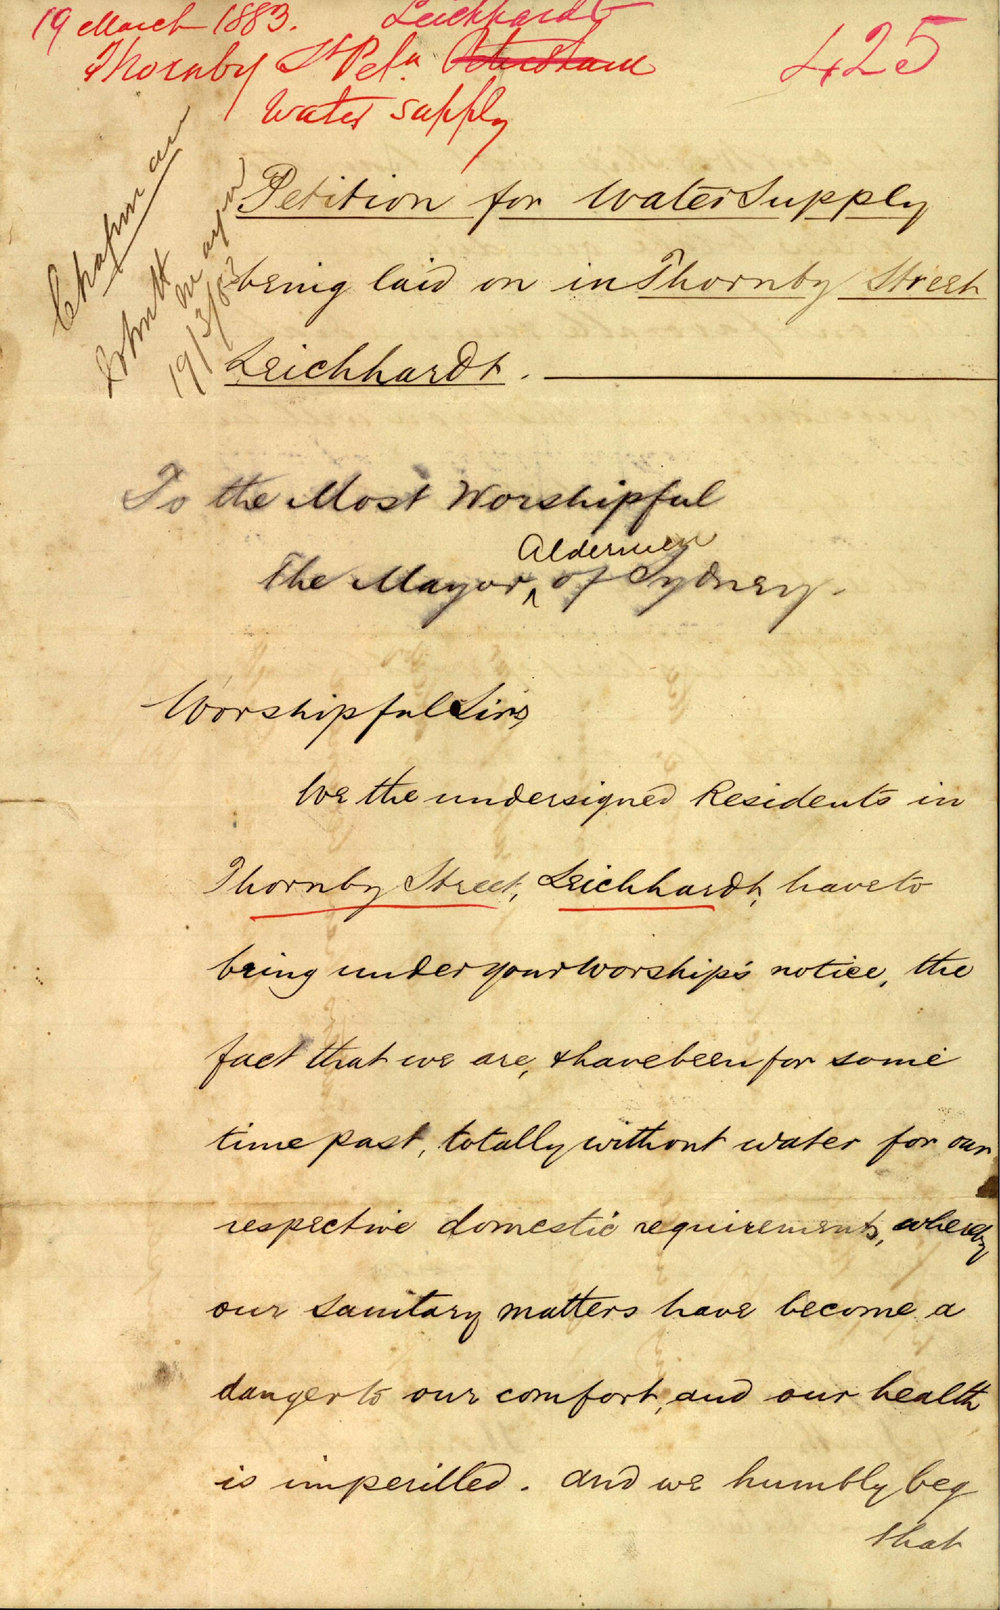 19 March 1883. Leichhardt
425
Thornby St Peta Petersham
Water supply
Chapman
mayor
19/3/83
Petition for Water Supply
being laid on in Thornby Street
Leichhardt.
To the Most Worshipful
Aldermen
The Mayor, of Sydney.
Worshipful Sirs
We the undersigned Residents in
Thornby Street, Leichhardt, have to
bring under your Worship's notice, the
fact that we are, & have been for some
time past, totally without water for our
respective domestic requirements, whereby
our sanitary matters have become a
danger to our comfort, and our health
is imperilled. And we humbly beg
that